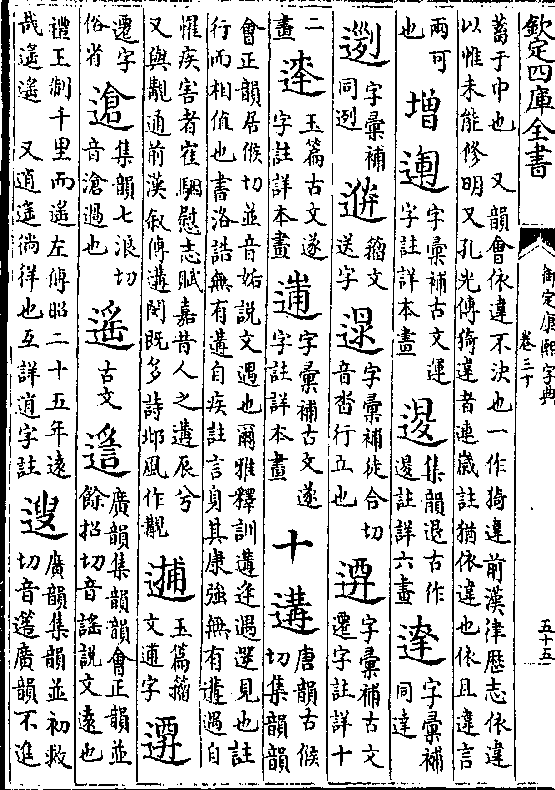 欽定四庫全書
御定康熙字典
卷三十下
五十五
蓄于巾也 又韻會依違不決也一作猗違前漢律歴志依違
以惟未能修明又孔光傳猗違者連歲註猶依違也依且違言
兩可
也
增
字彙補古文運
字註詳本畫
集韻退古作
註詳六畫
字彙補
同達
字彙補
同迾
籀文
送字
字彙補徒合切
音沓行立也
字彙補古文
遷字註詳十
二
畫
玉篇古文遂
字註詳本畫
字彙補古文遂
字註詳本畫
十 遘
唐韻古候
切集韻韻
會正韻居候切並音姤說文遇也爾雅釋訓遘逢遇遻見也註
行而相值也書洛誥無有遘自疾註言身其康強無有遘遇自
罹疾害者崔駰慰志賦嘉昔人之遘辰兮
又與覯通前漢敘傳遘閔既多詩邶風作覯
玉篇籀
文逋字
遷字
俗省
集韻七浪切
音滄過也
遙
古文
廣韻集韻韻會正韻並
餘招切音謠說文遠也
禮王制千里而遙左傳昭二十五年遠
哉遙遙 又逍遙徜徉也互詳逍字註
廣韻集韻並初救
切音簉廣韻不進